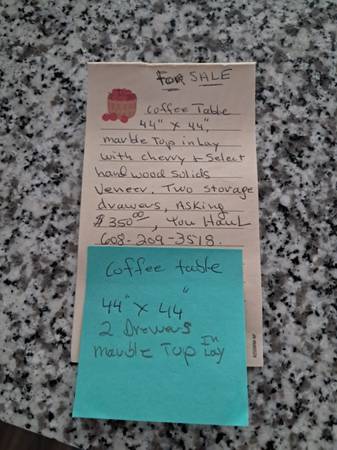 FOR SALE
Coffee Table
44" x 44",
marble Top inlay
with cherry + Select
hand wood solids
Veneer, Two storage
drawers, Asking
$350⁰⁰, You Haul
608-209-3518.
Coffee table
44" x 44"
2 Drawers
marble Top In
Lay